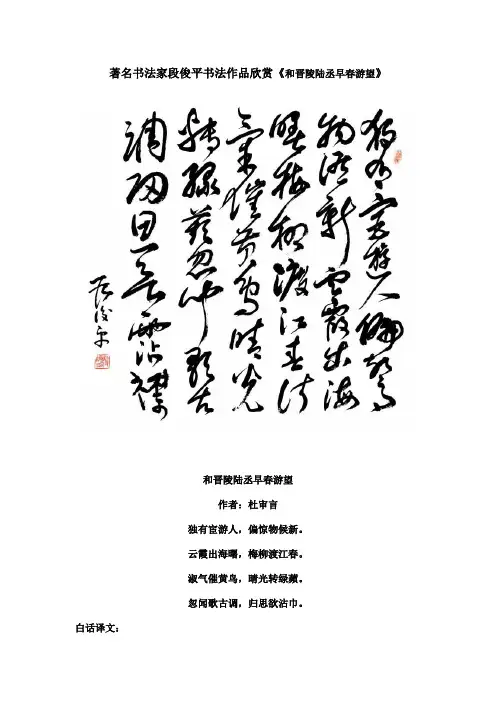 著名书法家段俊平书法作品欣赏《和晋陵陆丞早春游望》
獨有宦遊人偏驚
物候新雲霞出海
曙梅柳渡江春淑
氣催黄鳥晴光
轉緑蘋忽聞歌古
調歸思霑襟
段俊平
和晋陵陆丞早春游望
作者：杜审言
独有宦游人，偏惊物候新。
云霞出海曙，梅柳渡江春。
淑气催黄鸟，晴光转绿蘋。
忽闻歌古调，归思欲沾巾。
白话译文：